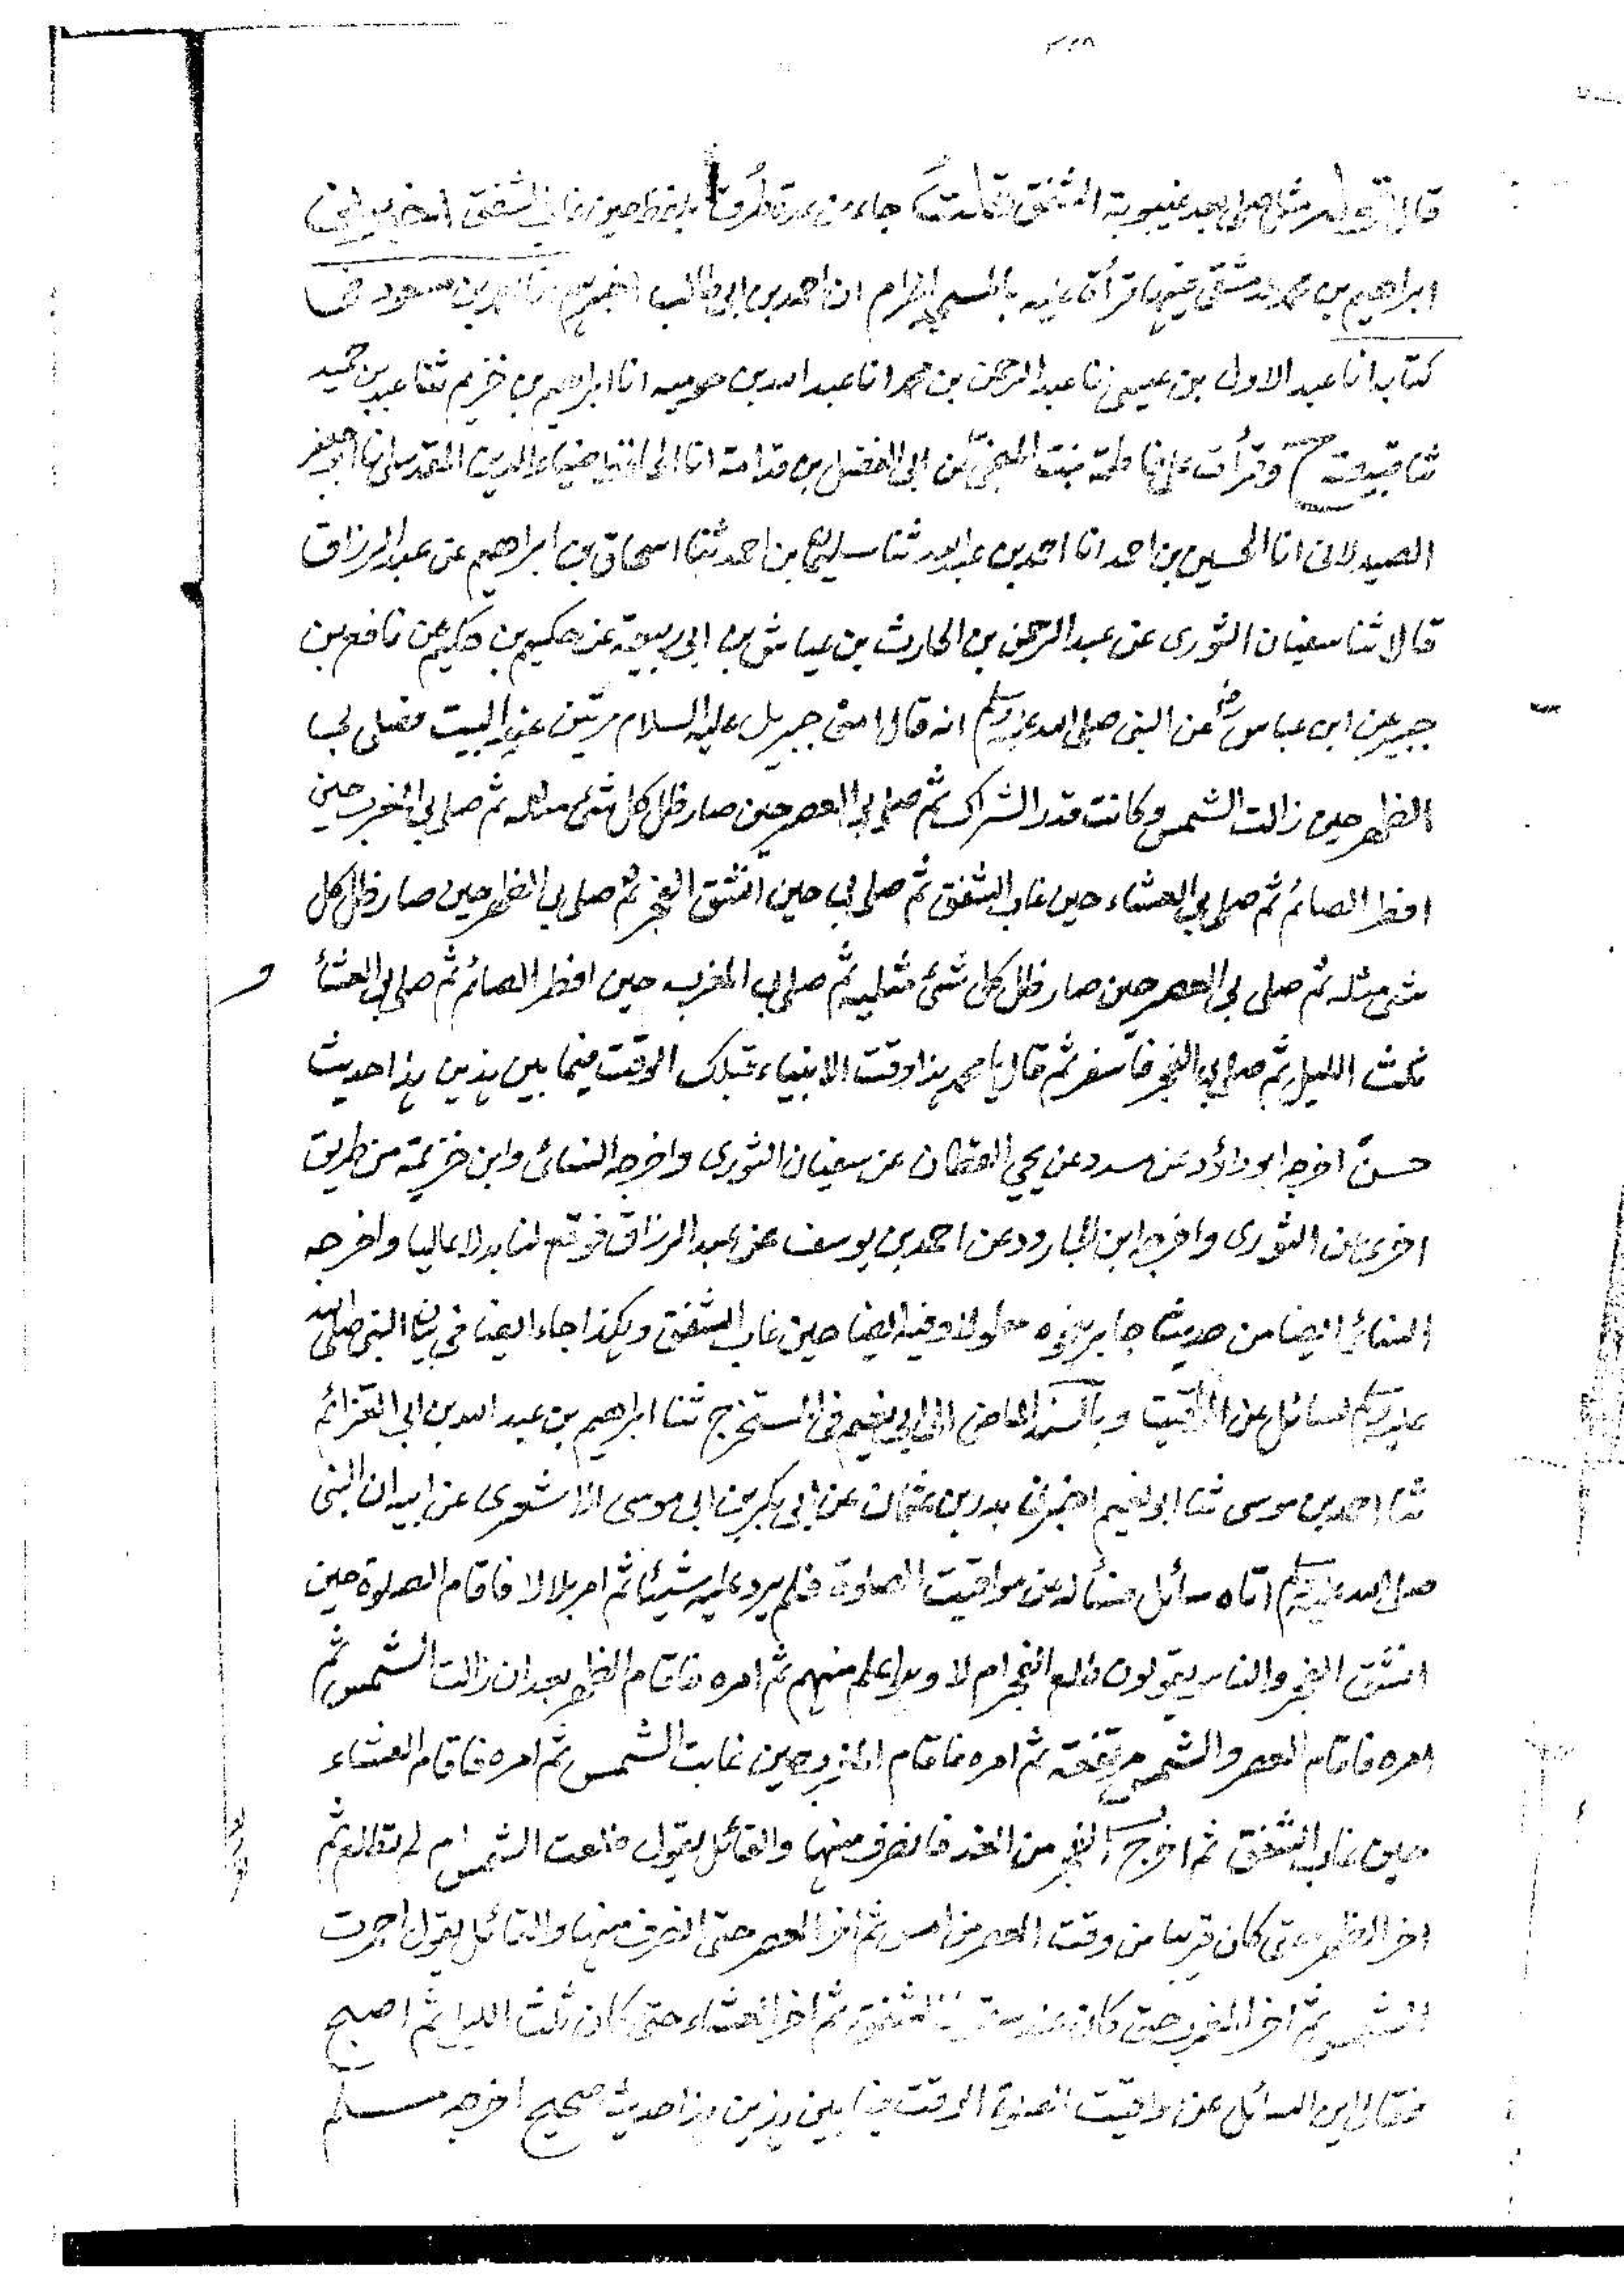 قال قوله صلى بعد غيبوبة الشفق قلت جاء من عدة طرق بلفظ حين غاب الشفق اخبرني
ابراهيم بن محمد الدمشقي فيما قرأت عليه بالمسجد الحرام ان احمد بن ابي طالب اخبرهم بن مسعود في
كتابه انا عبد الاول بن عيسى انا عبد الرحمن بن محمد انا عبد الله بن حمويه انا ابراهيم بن خزيم ثنا عبد بن حميد
ثنا قبيصة ح وقرأت على فاطمة بنت المنجى عن ابي الفضل بن قدامة انا الحافظ ضياء الدين المقدسي انا ابو جعفر
الصيدلاني انا الحسين بن احمد انا احمد بن عبد الله ثنا سليمان بن احمد ثنا اسحاق بن ابراهيم عن عبد الرزاق
قالا ثنا سفيان الثوري عن عبد الرحمن بن الحارث بن عياش بن ابي ربيعة عن حكيم بن حكيم عن نافع بن
جبير عن ابن عباس رض عن النبي صلى الله عليه وسلم انه قال امني جبريل عليه السلام مرتين عند البيت فصلى بي
الظهر حين زالت الشمس وكانت قدر الشراك ثم صلى بي العصر حين صار ظل كل شئ مثله ثم صلى بي المغرب حين
افطر الصائم ثم صلى بي العشاء حين غاب الشفق ثم صلى بي حين انشق الفجر ثم صلى بي الظهر حين صار ظل كل
شئ مثله ثم صلى بي العصر حين صار ظل كل شئ مثليه ثم صلى بي المغرب حين افطر الصائم ثم صلى بي العشأ
ثلث الليل ثم صلى بي الفجر فأسفر ثم قال يا محمد هذا وقت الانبياء قبلك الوقت فيما بين هذين هذا حديث
حسن اخرجه ابو داؤد عن مسدد عن يحيي القطان عن سفيان الثوري واخرجه النسائي وابن خزيمة من طريق
اخرى عن الثوري واخرجه ابن الجارود عن احمد بن يوسف عن عبد الرزاق فوقع لنا بدلا عاليا واخرجه
النسائي ايضا من حديث جابر نحوه مطولا وفيه ايضا حين غاب الشفق وهكذا جاء ايضا في بيان النبي صلى الله
عليه وسلم لسائل عن المواقيت وبالسند الماضي الى ابي نعيم في المستخرج ثنا ابراهيم بن عبد الله بن ابي العزائم
ثنا احمد بن موسى ثنا ابو نعيم اخبرنا بدر بن عثمان عن ابي بكر بن ابي موسى الاشعري عن ابيه ان النبي
صلى الله عليه وسلم اتاه سائل فسأله عن مواقيت الصلوة فلم يرد عليه شيئا ثم امر بلالا فاقام الصلوة حين
انشق الفجر والناس يقولون طلع الفجر ام لا وهو اعلم منهم ثم امره فاقام الظهر بعد ان زالت الشمس ثم
امره فاقام العصر والشمس مرتفعة ثم امره فاقام المغرب حين غابت الشمس ثم امره فاقام العشاء
حين غاب الشفق ثم اخرج الفجر من الغد فانصرف منها والقائل يقول طلعت الشمس ام لم تطلع ثم
اخر الظهر حتى كان قريبا من وقت العصر من امس ثم اخر العصر حتى انصرف منها والقائل يقول احمرت
الشمس ثم اخر المغرب حتى كان عند سقوط الشفق ثم اخر العشاء حتى كان ثلث الليل ثم اصبح
فقال اين السائل عن مواقيت الصلوة الوقت فيما بين هذين هذا حديث صحيح اخرجه مسلم